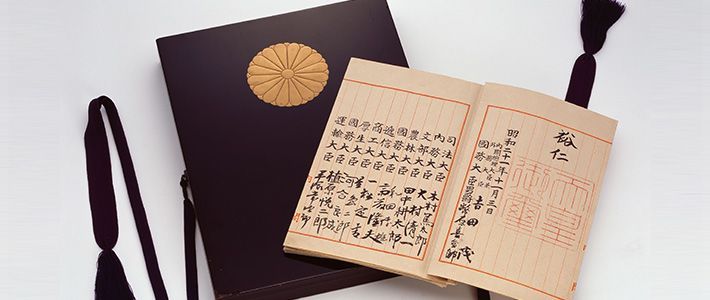 裕仁
天皇御璽
昭和二十一年十一月三日
内閣總理大臣兼
外務大臣 吉田茂
國務大臣 男爵 幣原喜重郎
司法大臣 木村篤太郎
内務大臣 大村清一
文部大臣 田中耕太郎
農林大臣 和田博雄
國務大臣 斎藤隆夫
逓信大臣 一松定吉
商工大臣 星島二郎
厚生大臣 河合良成
國務大臣 植原悦二郎
運輸大臣 平塚常次郎